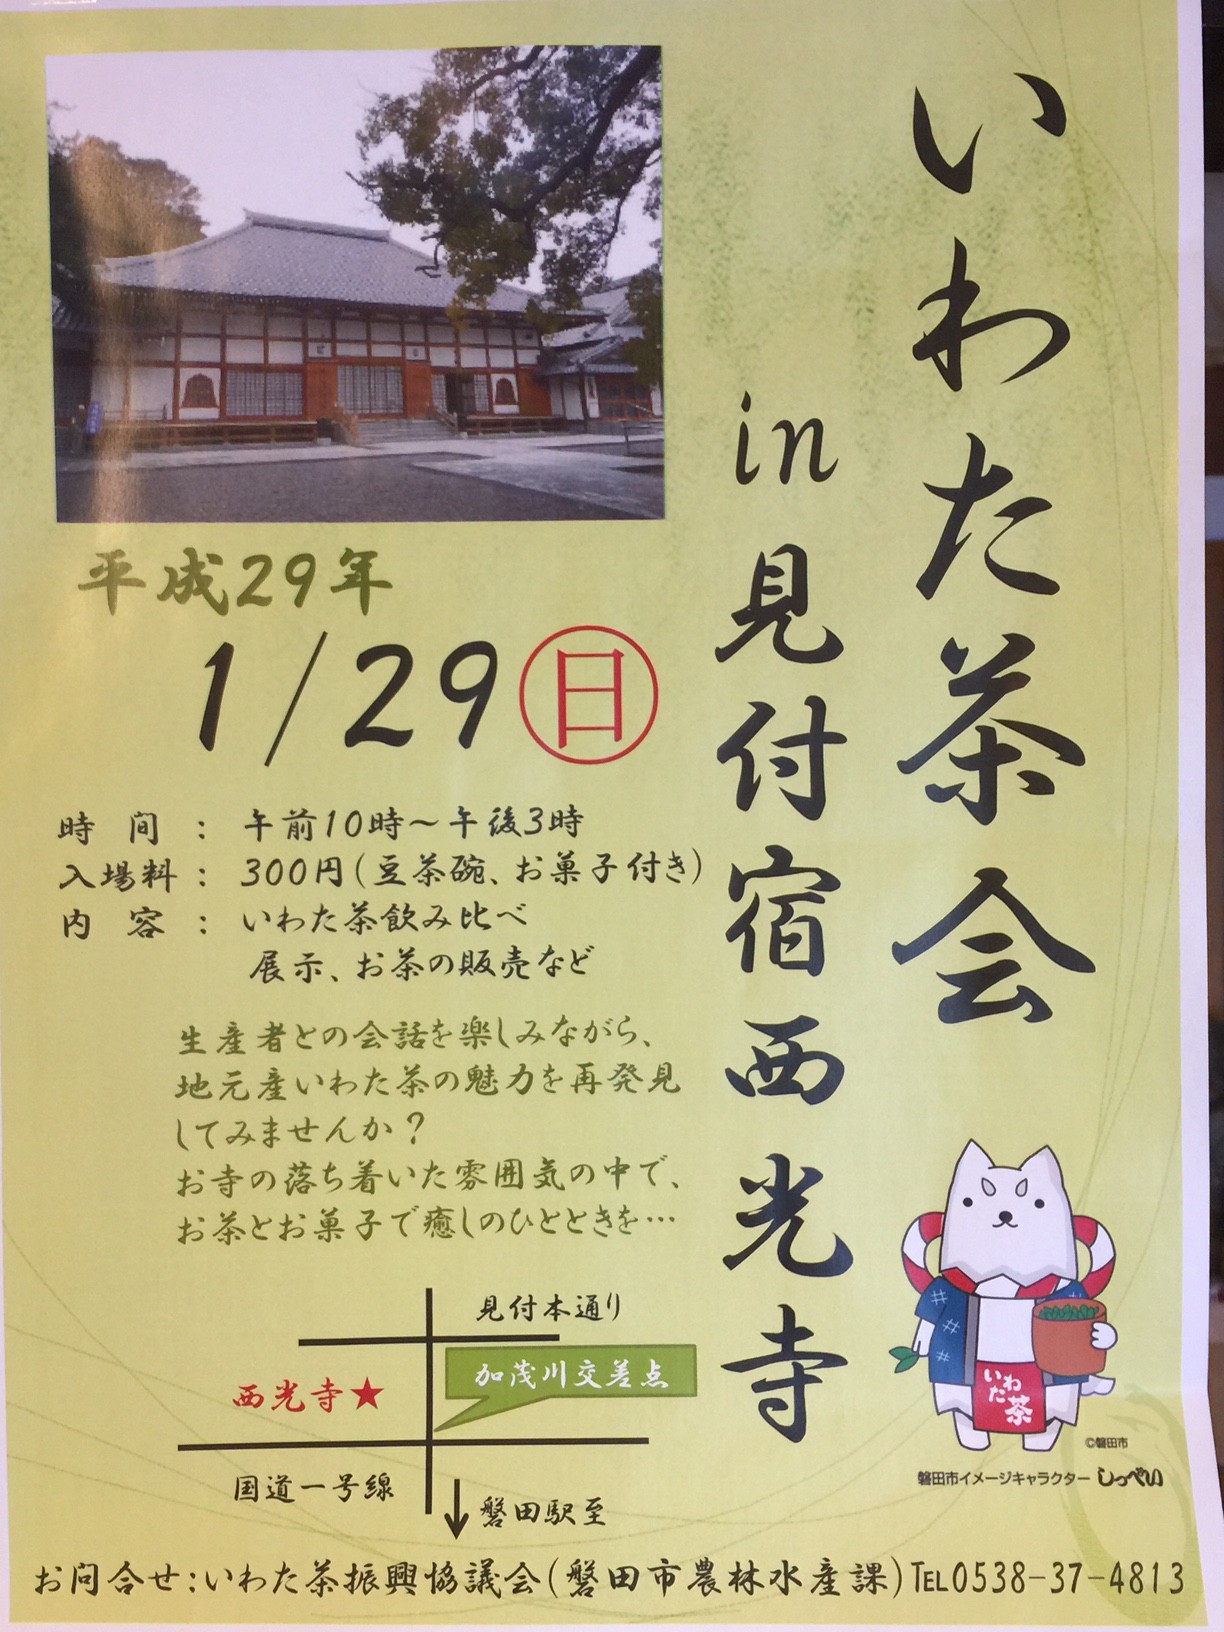 いわた茶会
in見付宿西光寺
平成29年
1/29㊐
時　間：午前10時～午後3時
入場料：300円(豆茶碗、お菓子付き)
内　容：いわた茶飲み比べ
展示、お茶の販売など
生産者との会話を楽しみながら、
地元産いわた茶の魅力を再発見
してみませんか？
お寺の落ち着いた雰囲気の中で、
お茶とお菓子で癒しのひとときを…
見付本通り
加茂川交差点
西光寺★
国道一号線
磐田駅至
いわ
た茶
©磐田市
磐田市イメージキャラクター しっぺい
お問合せ:いわた茶振興協議会(磐田市農林水産課)TEL0538-37-4813